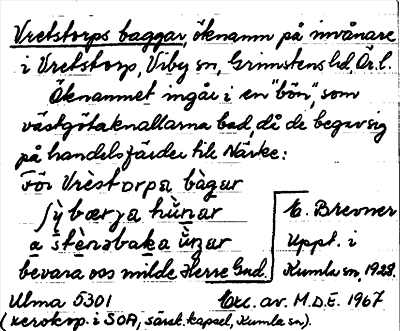 Vretstorps baggar, öknamn på invånare
i Vretstorp, Viby sn, Grimstens hd, Ör. l.
Öknamnet ingår i en "bön", som
västgötaknallarna bad, då de begav sig
på handelsfärder till Närke:
För Vrèstorpa bàgar
ſỳbærja hùnar
a stènəbaka ùŋar
bevara oss milde Herre Gud.
E. Brevner
Uppt. i
Kumla sn, 1929.
Ulma 5301
Exc. av. M.D.E. 1967
(xerokop. i SOA, särsk. kapsel, Kumla sn).